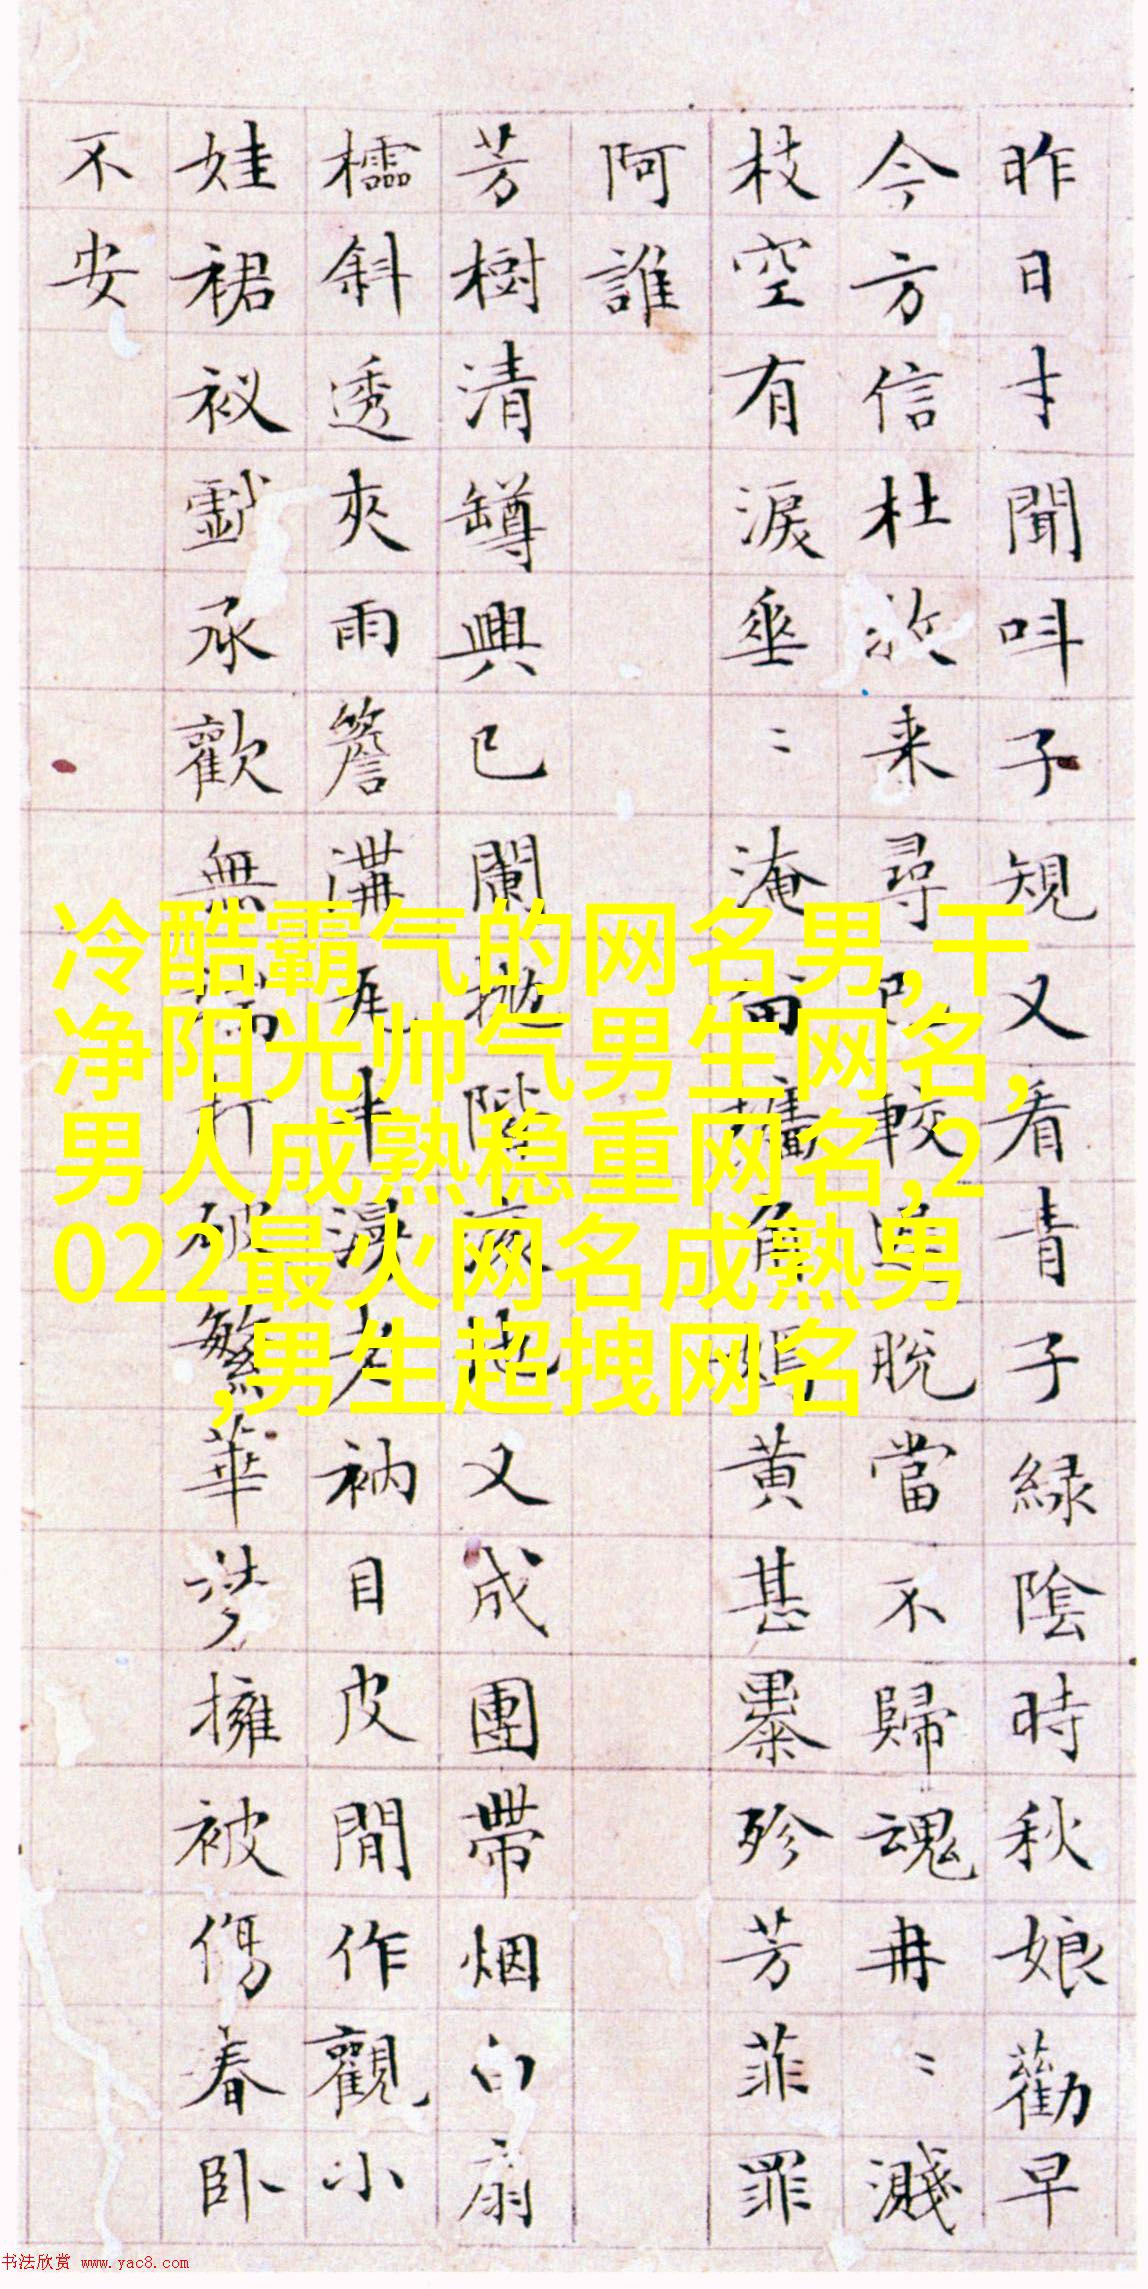 昨日才聞呌子規又看青子緑陰時秋娘勸早
今方信杜牧来尋已較遲脱當不歸魂冉〻濺
枝空有淚垂〻淹留角黃甚殄芳菲罪
阿誰
芳樹清罇興已闌拋階又成團帶烟白扇
櫺斜透夾雨簷溝瓦半老衲目皮間作觀小
娃裙衩承歡無端打破繁華夢擁被傷春卧
不安
冷酷霸气的网名男,干
净阳光帅气男生网名,
男人成熟稳重网名,2
022最火网名成熟男
,男生超拽网名
书法欣赏 www.yac8.com